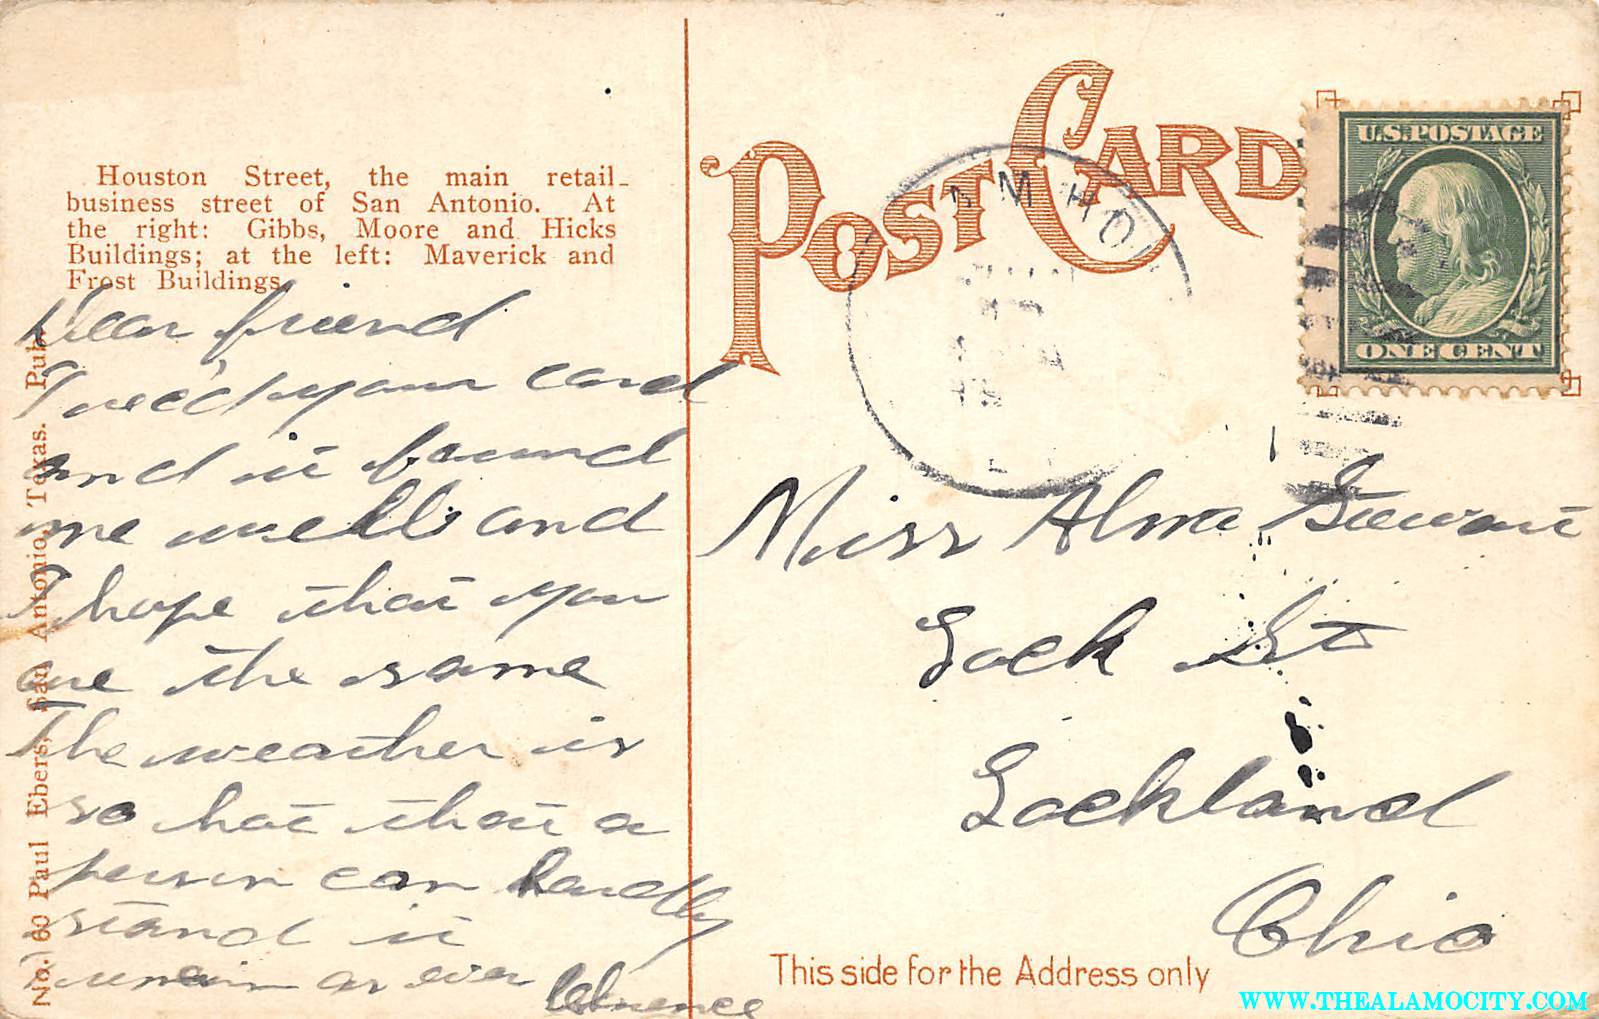 Houston Street, the main retail
business street of San Antonio. At
the right: Gibbs, Moore and Hicks
Buildings; at the left: Maverick and
Frost Buildings.
Dear friend
I rec'd your card
and it found
me well and
I hope that you
are the same
The weather is
so hot that a
person can hardly
stand it
remain as ever
No. 160 Paul Ebers, San Antonio, Texas. Pub.
POST CARD
U.S. POSTAGE
ONE CENT
AM HO
Miss Alma Stewart
Lock St
Lockland
Ohio
This side for the Address only
WWW.THEALAMOCITY.COM